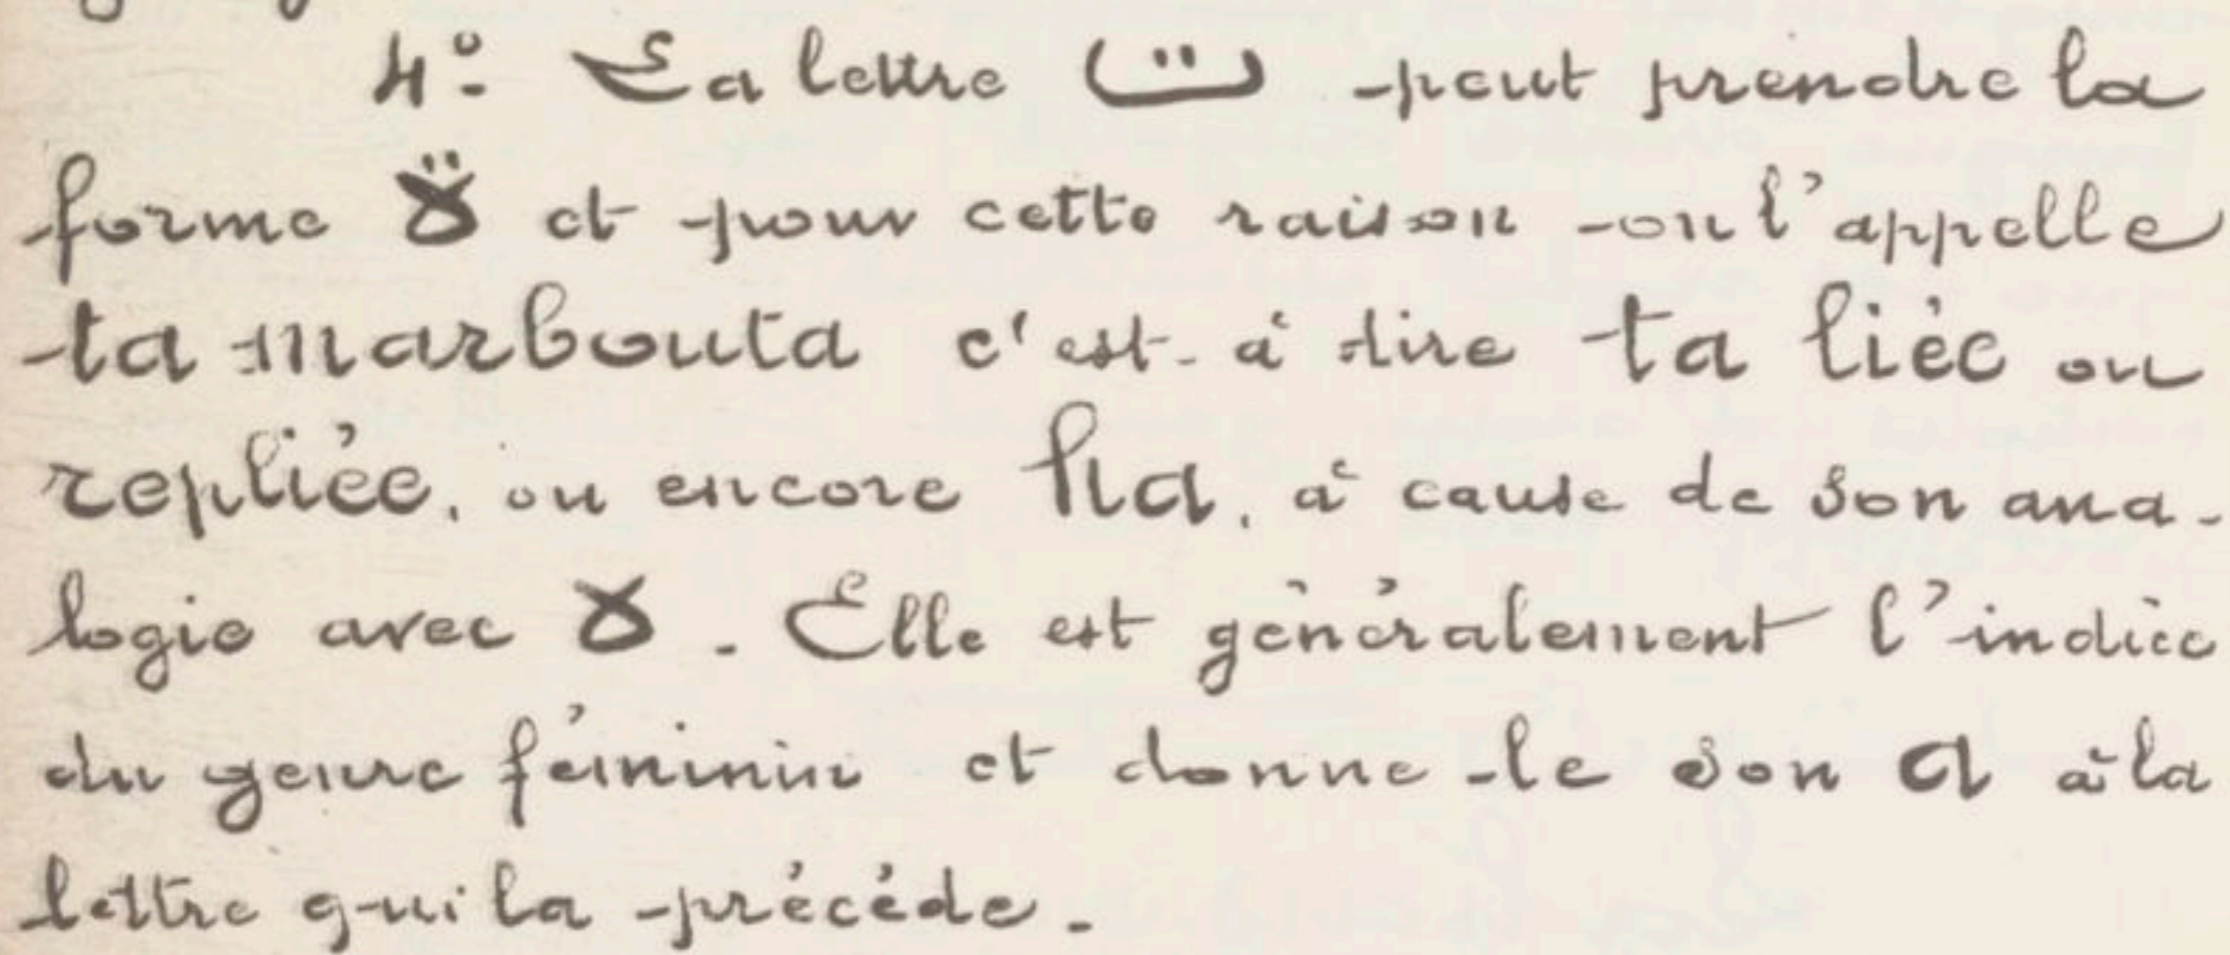 4º La lettre ت peut prendre la
forme ة et pour cette raison on l'appelle
ta marbouta c'est-à dire ta liée ou
repliée, ou encore ha, à cause de son ana-
logie avec ه. Elle est généralement l'indice
du genre féminin et donne le son a à la
lettre qui la précéde.